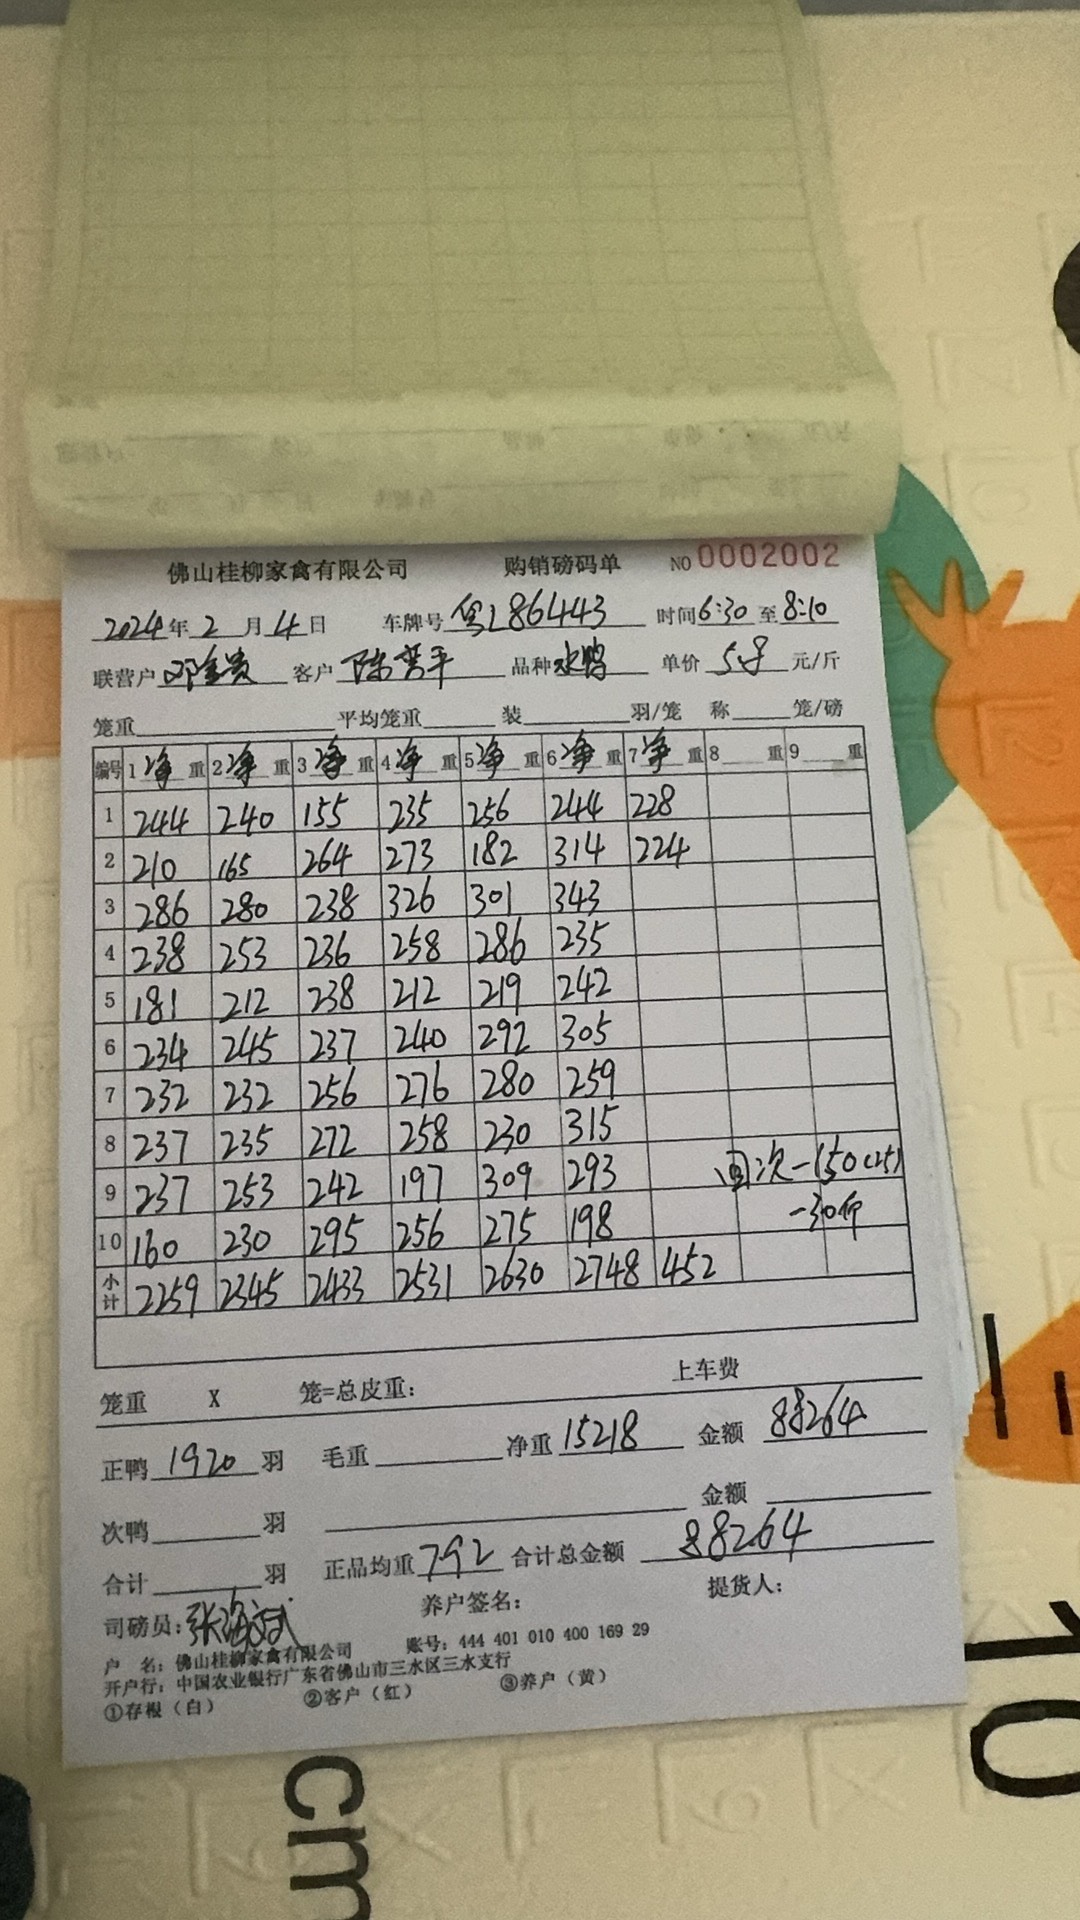 佛山桂柳家禽有限公司 购销磅码单 NO 0002002
2024年 2 月 4 日 车牌号 粤L86443 时间 6:30 至 8:10
联营户 邓金贵 客户 陈 平 品种 水鸭 单价 5.8 元/斤
笼重 平均笼重 装 羽/笼 称 笼/磅
编号 1 净 重 2 净 重 3 净 重 4 净 重 5 净 重 6 净 重 7 净 重 8 重 9 重
1 244 240 155 235 256 244 228
2 210 165 264 273 182 314 224
3 286 280 238 326 301 343
4 238 253 236 258 286 235
5 181 212 238 212 219 242
6 234 245 237 240 292 305
7 232 232 256 276 280 259
8 237 235 272 258 230 315
9 237 253 242 197 309 293 回次-150(25)
10 160 230 295 256 275 198 -30
小计 2259 2345 2433 2531 2630 2748 452
笼重 X 笼=总皮重: 上车费
正鸭 1920 羽 毛重 净重 15218 金额 88264
次鸭 羽 金额
合计 羽 正品均重 7.92 合计总金额 88264
司磅员: 张 养户签名: 提货人:
户 名: 佛山桂柳家禽有限公司 账号: 444 401 010 400 169 29
开户行: 中国农业银行广东省佛山市三水区三水支行
①存根（白） ②客户（红） ③养户（黄）
10
cm